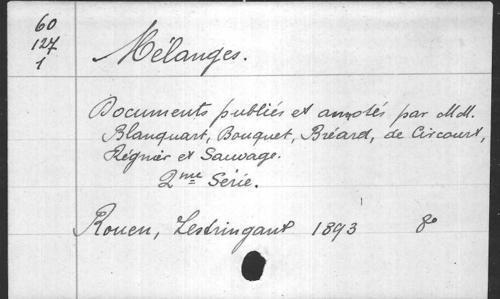 60
127
1
Mélanges.
Documents publiés et annotés par MM.
Blanquart, Bouquet, Bréard, de Circourt,
Régnier et Sauvage.
2me Série.
Rouen, Lestringant 1893 8o